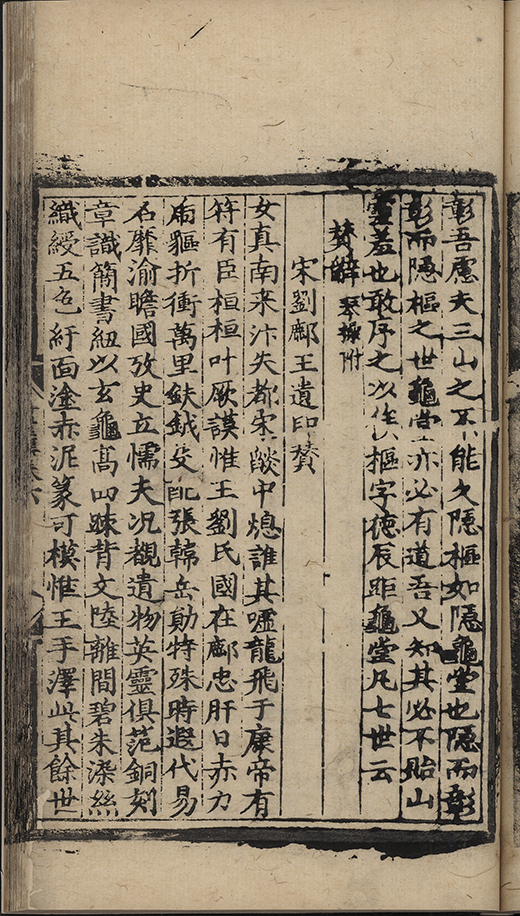 彰吾慮夫三山之不能久隱樞如隱龜堂也隱而彰
彰而隱樞之世龜堂亦必有道吾又知其必不貽山
靈羞也敢序之以俟樞字德辰距龜堂凡七世云
贊辭 琴操附
宋劉鄜王遺印贊
女真南来汴失都宋燄中熄誰其噓龍飛于康帝有
符有臣桓桓叶厥謨惟王劉氏國在鄜忠肝日赤力
扄軀折衝萬里鈇鉞殳配張韓岳勛特殊時遐代易
名靡渝瞻國攷史立懦夫况覩遺物英靈俱范銅刻
章識簡書紐以玄龜高四踈背文陸離間碧朱染絲
織綬五色紆面塗赤泥篆可模惟王手澤此其餘世